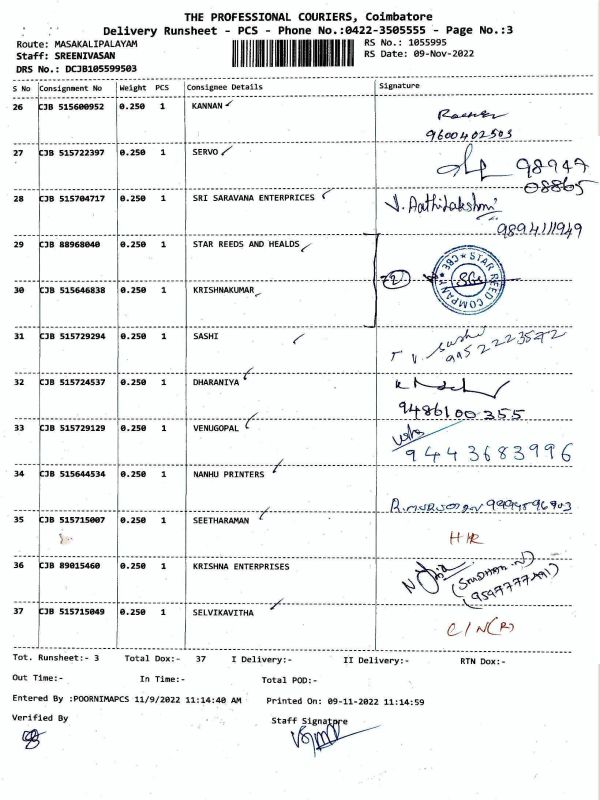 THE PROFESSIONAL COURIERS, Coimbatore
Delivery Runsheet - PCS - Phone No.:0422-3505555 - Page No.:3
Route: MASAKALIPALAYAM RS No.: 1055995
Staff: SREENIVASAN RS Date: 09-Nov-2022
DRS No.: DCJB105599503
S No Consignment No Weight PCS Consignee Details Signature
26 CJB 515600952 0.250 1 KANNAN
9600402503
27 CJB 515722397 0.250 1 SERVO 98947
08865
28 CJB 515704717 0.250 1 SRI SARAVANA ENTERPRICES J. Aathilakshmi
9894111949
29 CJB 88968040 0.250 1 STAR REEDS AND HEALDS
STAR REED COMPANY ★ CBE ★
30 CJB 515646838 0.250 1 KRISHNAKUMAR
31 CJB 515729294 0.250 1 SASHI
9952223572
32 CJB 515724537 0.250 1 DHARANIYA
9486100355
33 CJB 515729129 0.250 1 VENUGOPAL
9443683996
34 CJB 515644534 0.250 1 NANHU PRINTERS
35 CJB 515715007 0.250 1 SEETHARAMAN
36 CJB 89015460 0.250 1 KRISHNA ENTERPRISES
37 CJB 515715049 0.250 1 SELVIKAVITHA
Tot. Runsheet:- 3 Total Dox:- 37 I Delivery:- II Delivery:- RTN Dox:-
Out Time:- In Time:- Total POD:-
Entered By :POORNIMAPCS 11/9/2022 11:14:40 AM Printed On: 09-11-2022 11:14:59
Verified By Staff Signatpre